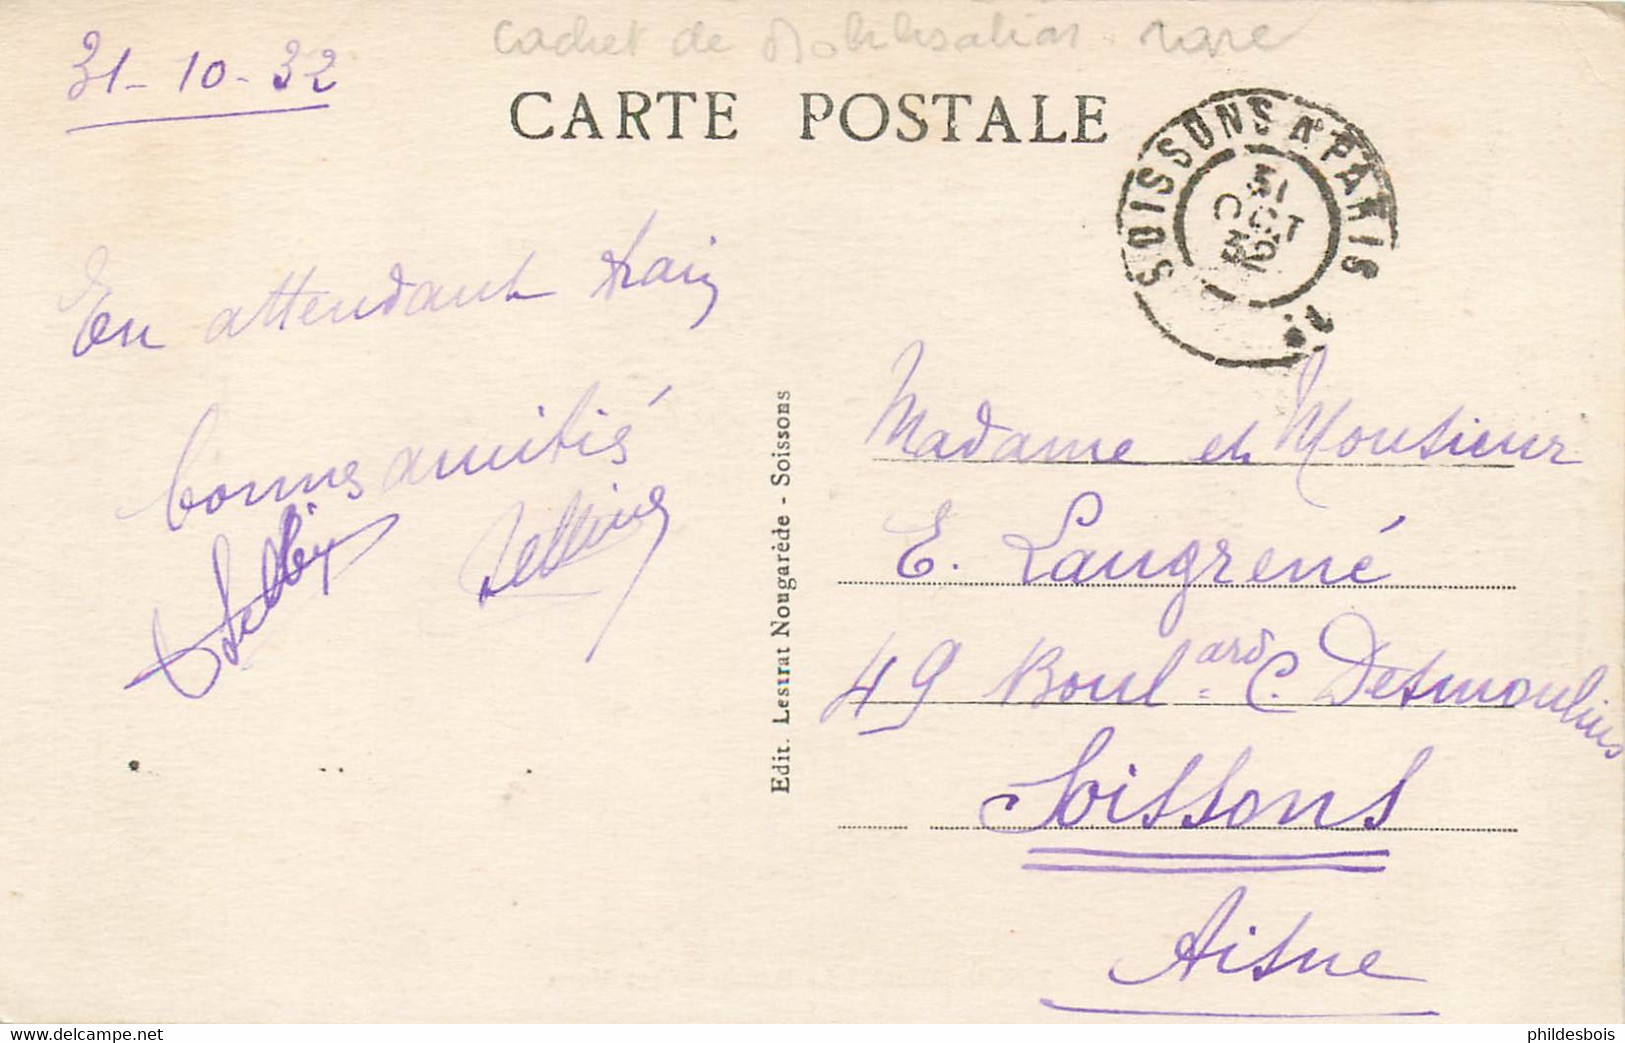 cachet de Mobilisation rare
31-10-32
CARTE POSTALE
SOISSONS A PARIS
31
OCT
32
En attendant train
bonnes amitiés
Edit. Lesirat Nougarède - Soissons
Madame et Monsieur
E. Langrené
49 Boulard C. Desmoulins
Soissons
Aisne
www.delcampe.net
phildesbois